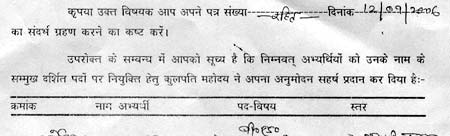 कृपया उक्त विषयक आप अपने पत्र संख्या रहित दिनांक 12/09/2006
का संदर्भ ग्रहण करने का कष्ट करें।
उपरोक्त के सम्बन्ध में आपको सूच्य है कि निम्नवत् अभ्यर्थियों को उनके नाम के
सम्मुख दर्शित पदों पर नियुक्ति हेतु कुलपति महोदय ने अपना अनुमोदन सहर्ष प्रदान कर दिया है:-
क्रमांक नाग अभ्यर्थी पद-विषय स्तर
बी०एड०